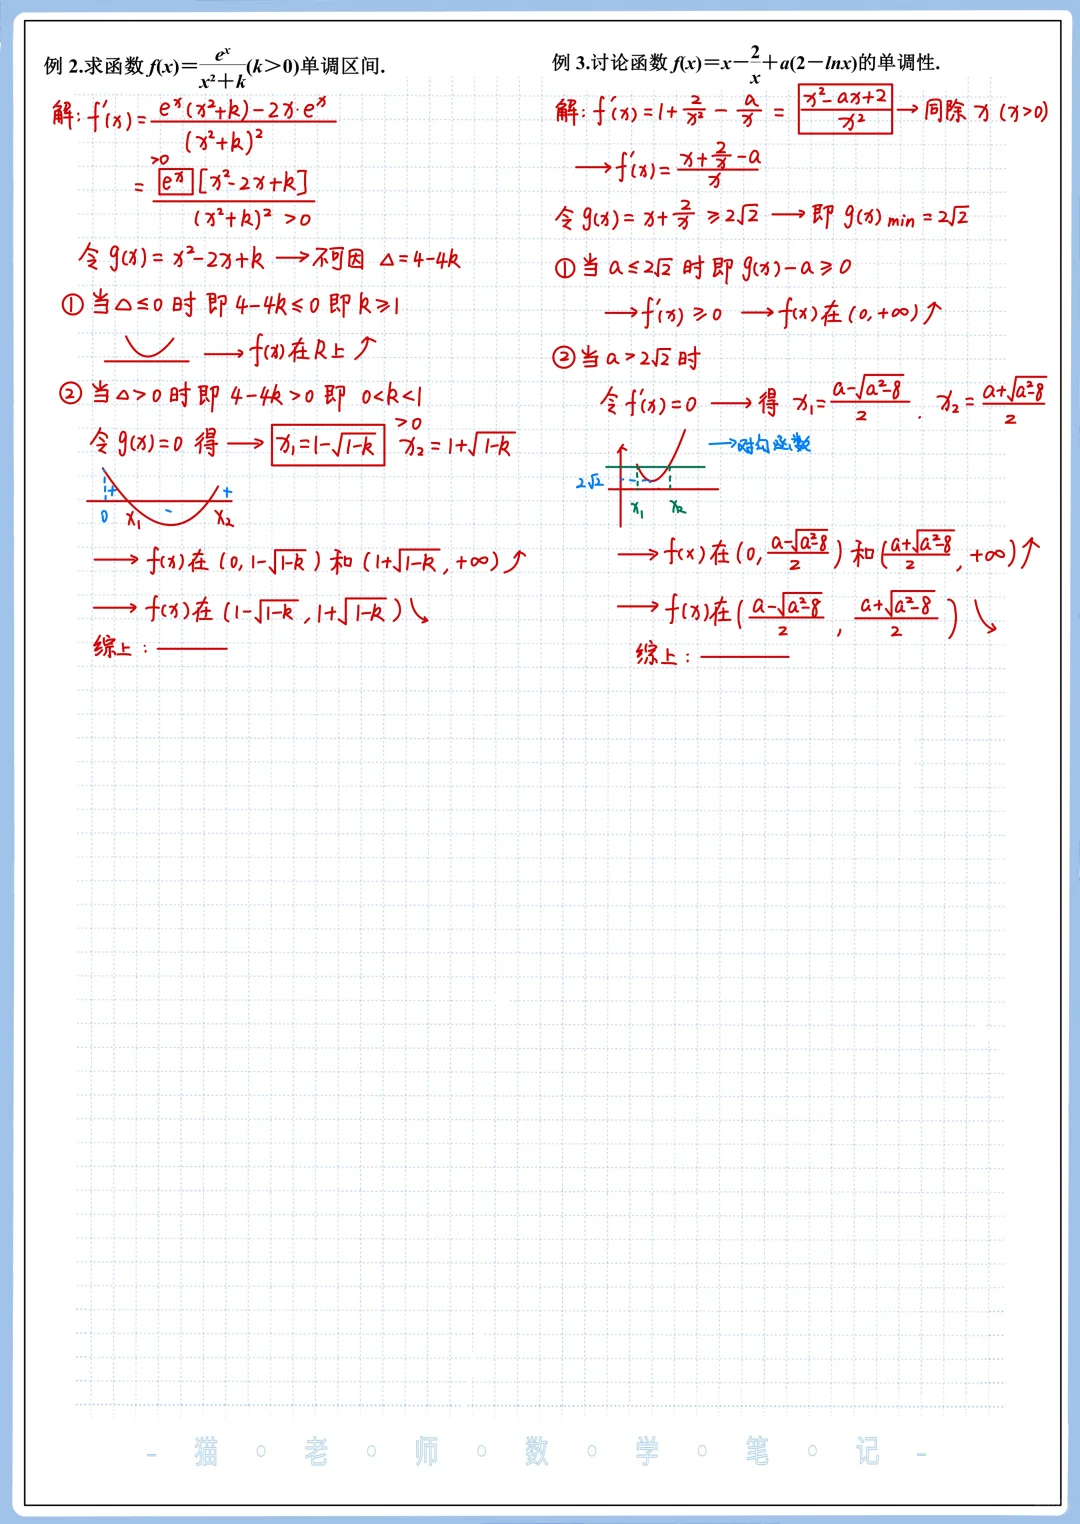 例 2.求函数 f(x)=e^x/(x²+k)(k>0)单调区间.
解: f'(x)=[e^x(x²+k)-2x·e^x]/(x²+k)²
>0
=e^x[x²-2x+k]/(x²+k)² >0
令 g(x)= x²-2x+k →不可因 △=4-4k
①当△≤0 时 即 4-4k≤0 即 k≥1
→f(x)在R上↑
②当△>0 时即 4-4k>0 即 0<k<1
>0
令 g(x)=0 得 → x₁=1-√(1-k) x₂=1+√(1-k)
+ - +
0 x₁ x₂
→ f(x)在 (0,1-√(1-k)) 和 (1+√(1-k),+∞)↑
→ f(x)在 (1-√(1-k),1+√(1-k))↘
综上:
例 3.讨论函数 f(x)=x-2/x+a(2-lnx)的单调性.
解: f'(x)=1+2/x²-a/x = (x²-ax+2)/x² →同除 x (x>0)
→f'(x)=(x+2/x-a)/x
令 g(x)= x+2/x ≥2√2 →即 g(x)min=2√2
①当 a≤2√2 时 即 g(x)-a≥0
→f'(x)≥0 →f(x)在(0,+∞)↑
②当 a>2√2 时
令 f'(x)=0 →得 x₁=(a-√(a²-8))/2 . x₂=(a+√(a²-8))/2
→对勾函数
2√2
x₁ x₂
→f(x)在(0,(a-√(a²-8))/2)和((a+√(a²-8))/2,+∞)↑
→f(x)在((a-√(a²-8))/2,(a+√(a²-8))/2)↘
综上:
- 猫·老·师·数·学·笔·记 -